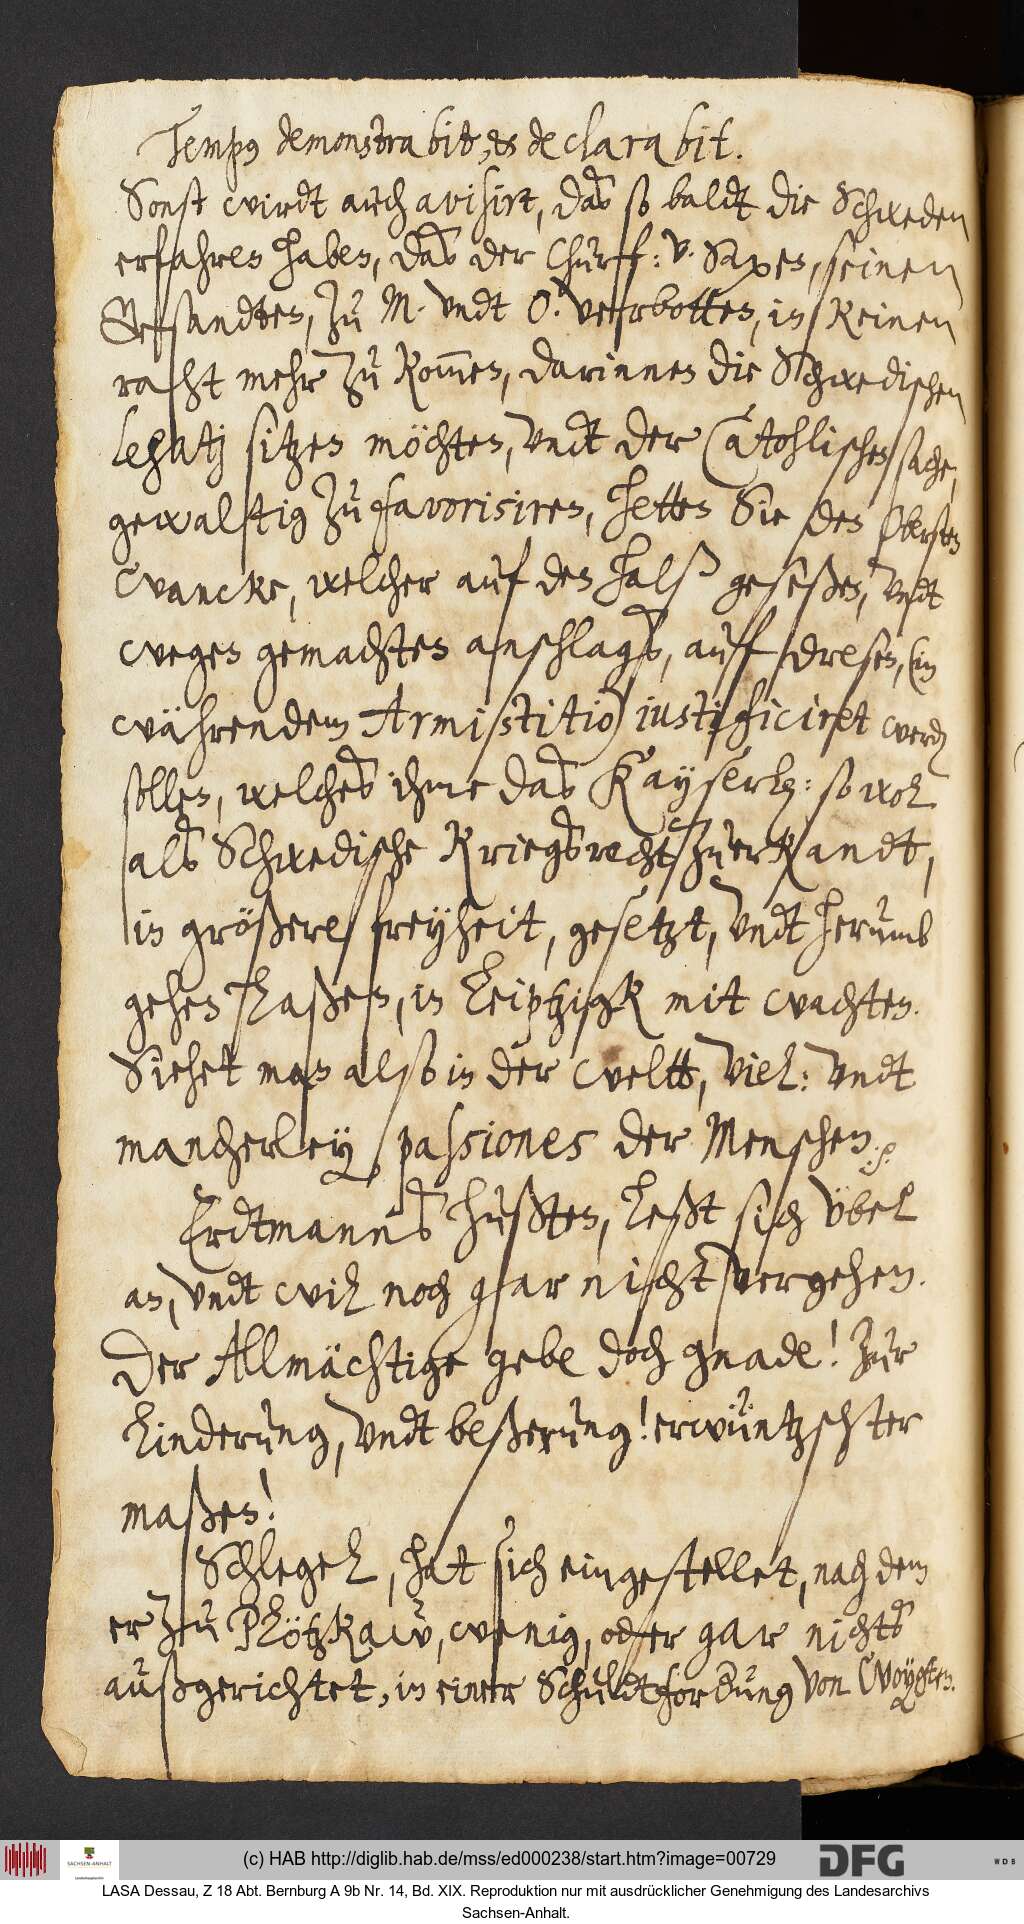 Tempus demonstrabit, et declarabit.
Sonst wirdt auch avisirt, daß so baldt die Schweden
erfahren haben, daß der Churf: v. Saxen, seinen
Gesandten, zu M. vndt O. verbotten, in keinen
raht mehr zu kom̄en, darinnen die Schwedischen
Legatj sitzen möchten, vndt der Catohlischen sache,
gewalftig zu favorisiren, hetten Sie den Obersten
Wancke, welcher auf den halß geseßen, vndt
wegen gemachten anschlags, auff dresen, (in
währendem Armistitio) iustificiret werden
sollen, welches ihme das Kayserl: so wol
als Schwedische Kriegsrecht zuerkandt,
in größere freyheit, gesetzt, vndt herumb
gehen laßen, in Leiptzigk mit wachten.
Siehet man also in der weltt, viel: vndt
mancherley passiones der Menschen. /
Erdtmanns husten, leßt sich vbel
an, vndt wil noch gar nicht vergehen.
Der Allmächtige gebe doch gnade! zur
linderung, vndt beßerung! erwüntzschter
maßen!
Schlegel, hat sich eingestellet, nach dem
er zu Plötzkaw, wenig, oder gar nichts
außgerichtet, in einer Schuldtforderung von
(c) HAB http://diglib.hab.de/mss/ed000238/start.htm?image=00729
SACHSEN-ANHALT
DFG
WDB
LASA Dessau, Z 18 Abt. Bernburg A 9b Nr. 14, Bd. XIX. Reproduktion nur mit ausdrücklicher Genehmigung des Landesarchivs
Sachsen-Anhalt.